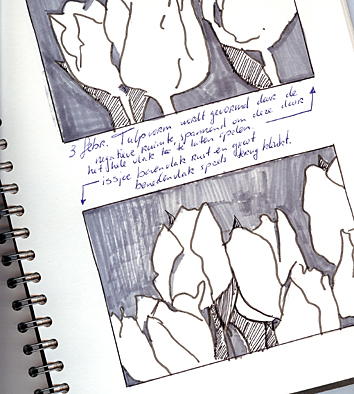 3 febr. Tulpvorm wordt gevormd door de
negatieve ruimte, spannend om deze door
het hele vlak te laten spelen.
bovenvlak rust en groot
benedenvlak speels terug klinkt.